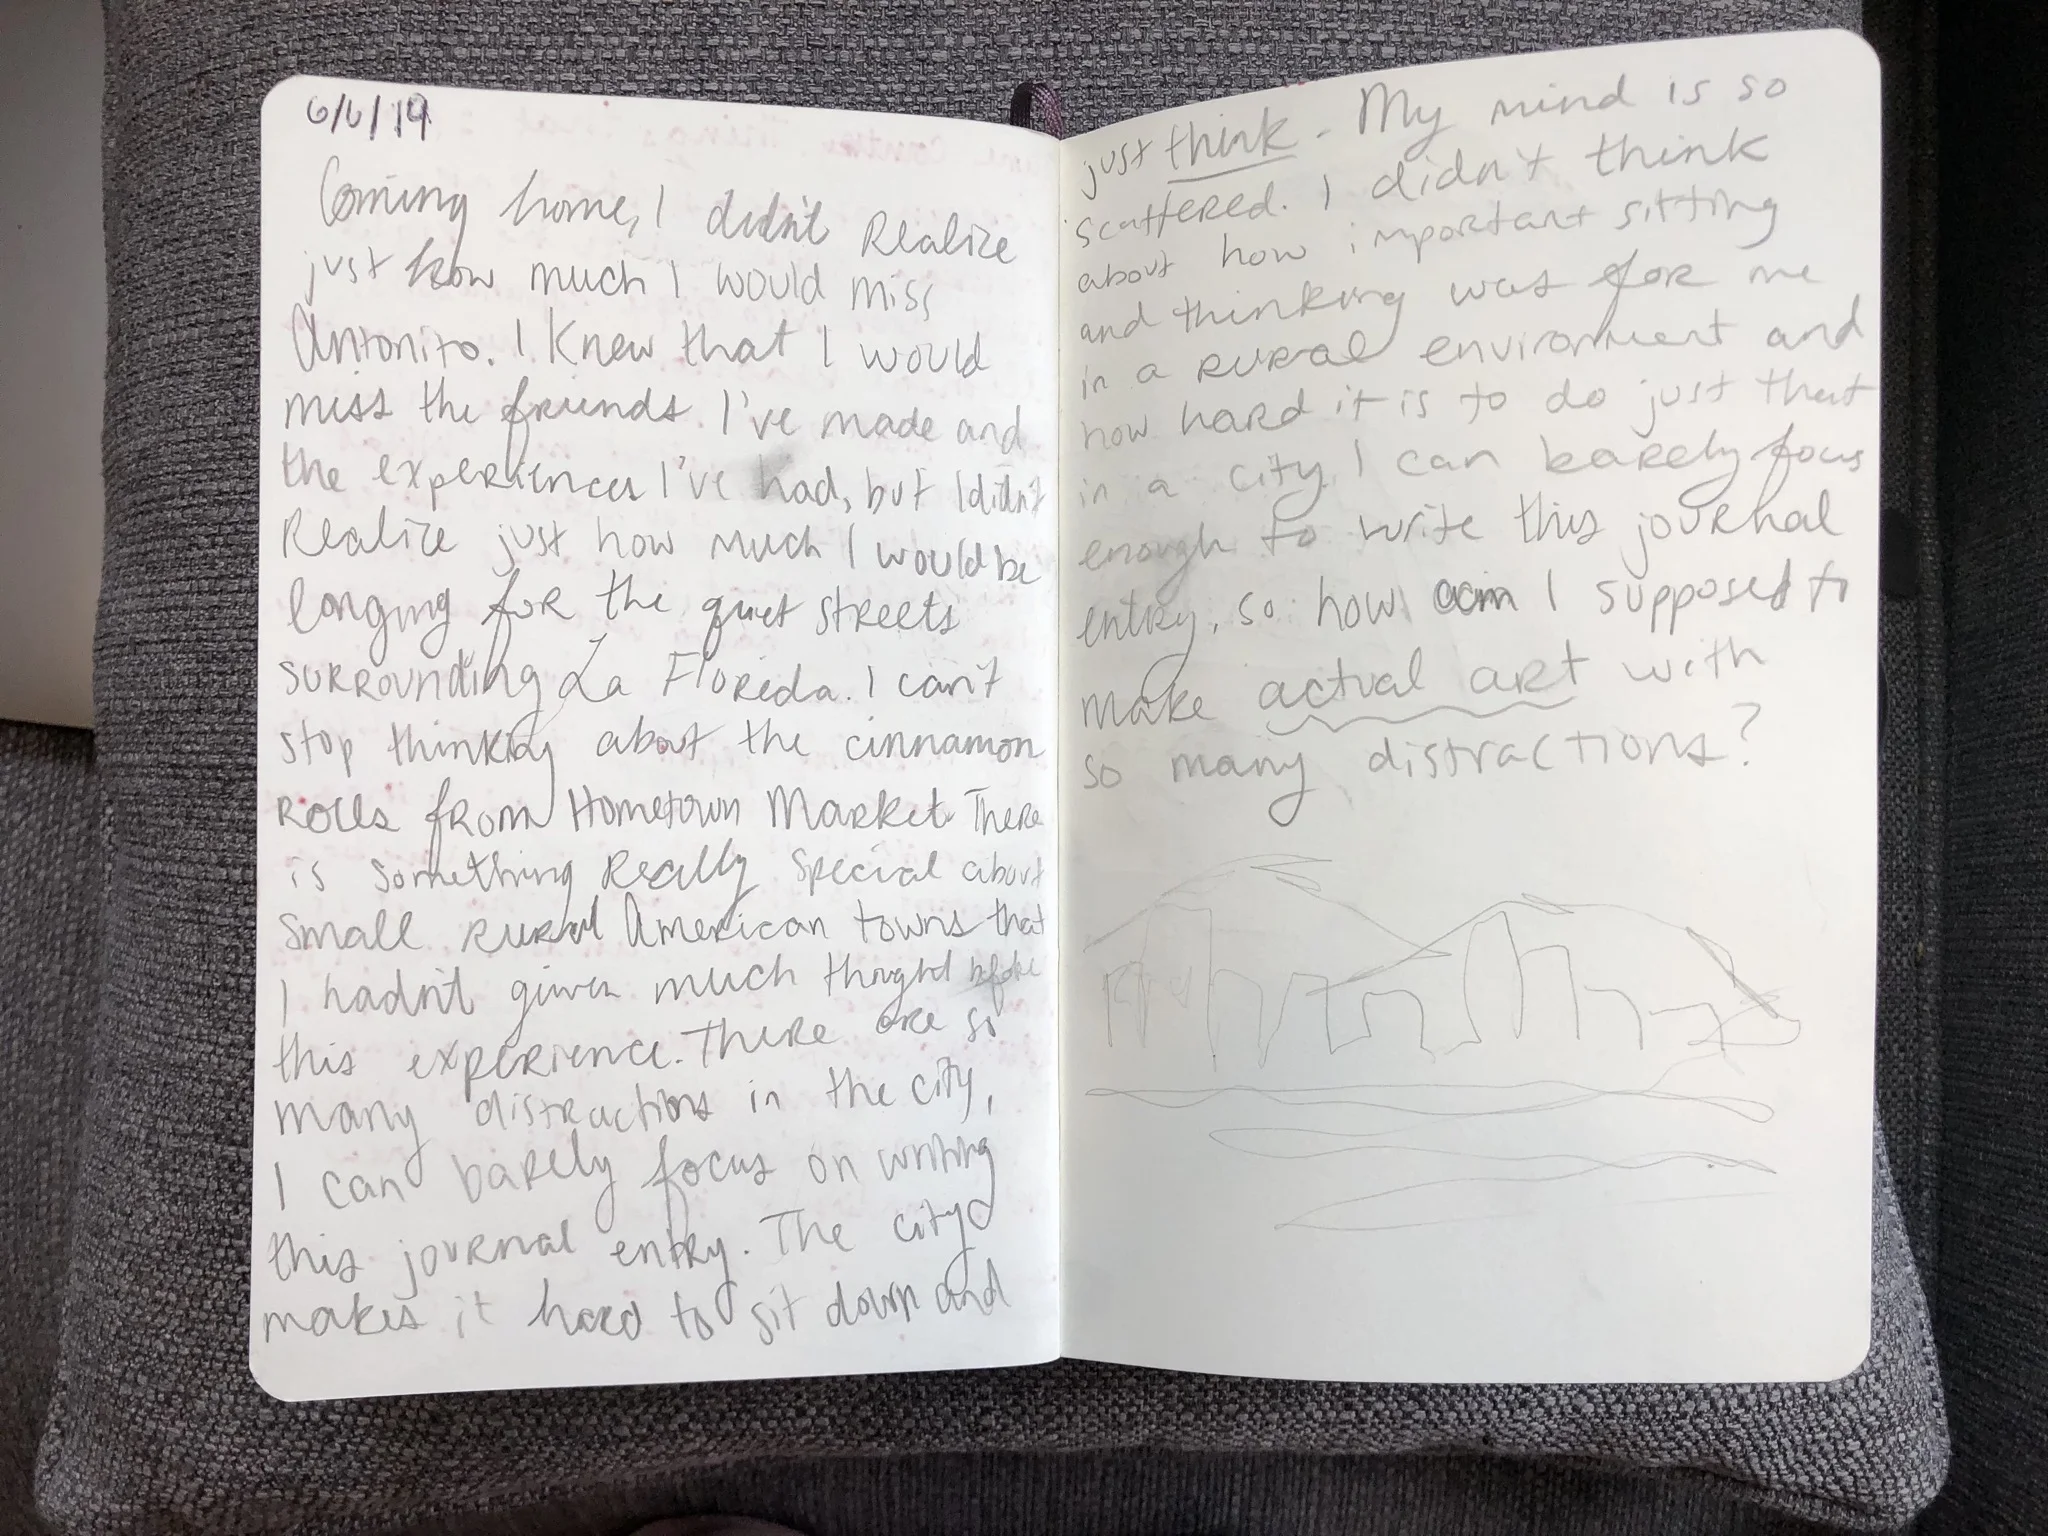 6/6/19
Coming home, I didn't Realize
just how much I would miss
Antonito. I Knew that I would
miss the friends I've made and
the experiences I've had, but I didn't
Realize just how much I would be
longing for the quiet streets
surrounding La Floreda. I can't
stop thinking about the cinnamon
Rolls from Hometown Market. There
is something Really special about
small rural American towns that
I hadn't given much thought before
this experience. There are so
many distractions in the city,
I can barely focus on writing
this journal entry. The city
makes it hard to sit down and
just think. My mind is so
scattered. I didn't think
about how important sitting
and thinking was for me
in a rural environment and
how hard it is to do just that
in a city. I can barely focus
enough to write this journal
entry, so how am I supposed to
make actual art with
so many distractions?